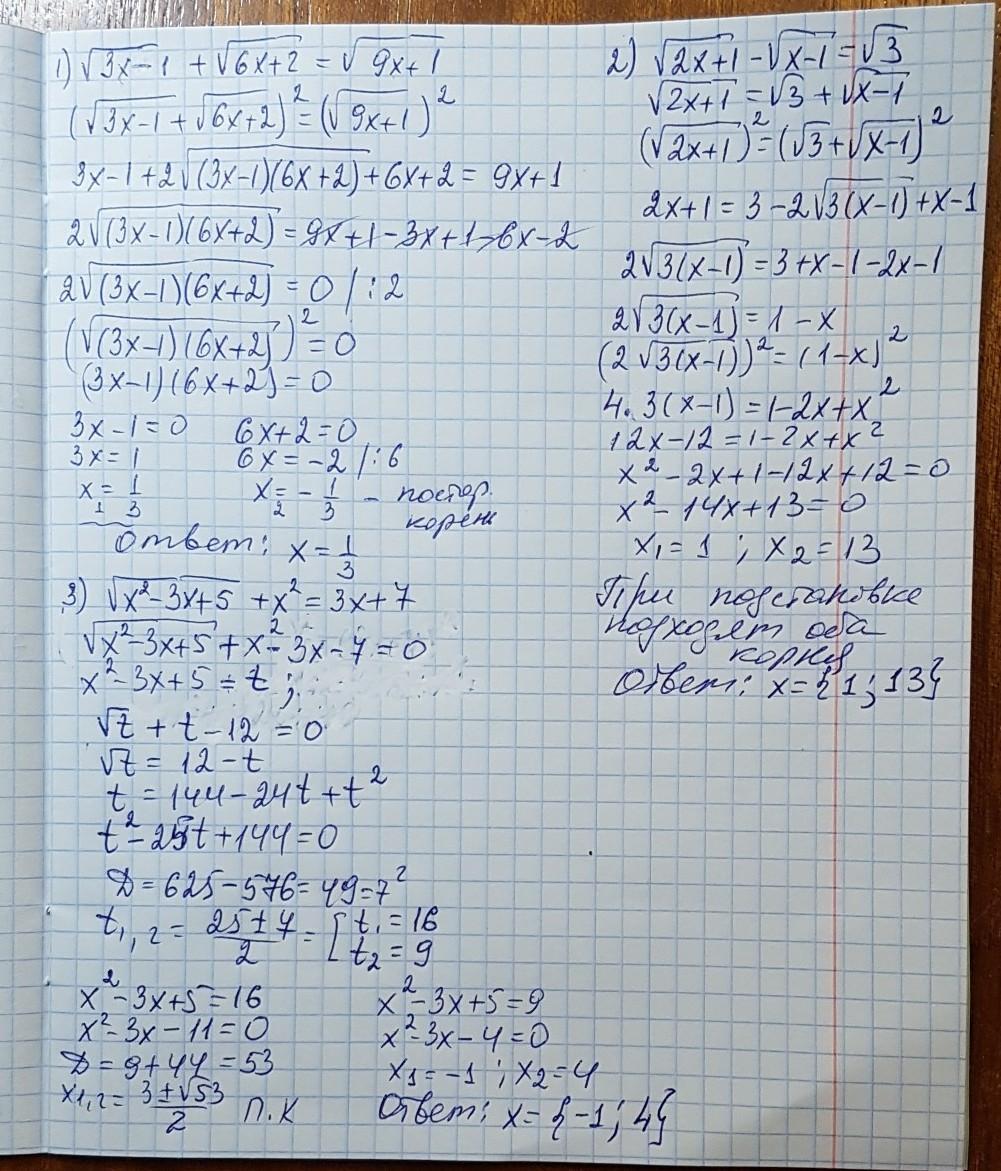 1) √(3x-1) + √(6x+2) = √(9x+1)
(√(3x-1) + √(6x+2))² = (√(9x+1))²
3x-1+2√((3x-1)(6x+2)) + 6x+2 = 9x+1
2√((3x-1)(6x+2)) = 9x+1-3x+1-6x-2
2√((3x-1)(6x+2)) = 0 /:2
(√((3x-1)(6x+2)))² = 0
(3x-1)(6x+2) = 0
3x-1=0 6x+2=0
3x=1 6x=-2 /:6
x₁ = 1/3 x₂ = -1/3 - постор. корень
Ответ: x = 1/3
2) √(2x+1) - √(x-1) = √3
√(2x+1) = √3 + √(x-1)
(√(2x+1))² = (√3 + √(x-1))²
2x+1 = 3-2√(3(x-1)) + x-1
2√(3(x-1)) = 3+x-1-2x-1
2√(3(x-1)) = 1-x
(2√(3(x-1)))² = (1-x)²
4·3(x-1) = 1-2x+x²
12x-12 = 1-2x+x²
x²-2x+1-12x+12=0
x²-14x+13=0
x₁=1 ; x₂=13
При подстановке
подходят оба
корня
Ответ: x={1; 13}
3) √(x²-3x+5) + x² = 3x+7
√(x²-3x+5) + x²-3x-7=0
x²-3x+5 = t ;
√t + t-12=0
√t = 12-t
t = 144-24t+t²
t²-25t+144=0
D=625-576=49=7²
t₁,₂ = (25±7)/2 = [t₁=16
t₂=9
x²-3x+5=16
x²-3x-11=0
D=9+44=53
x₁,₂ = (3±√53)/2 П.К
x²-3x+5=9
x²-3x-4=0
x₁=-1 ; x₂=4
Ответ: x={-1; 4}